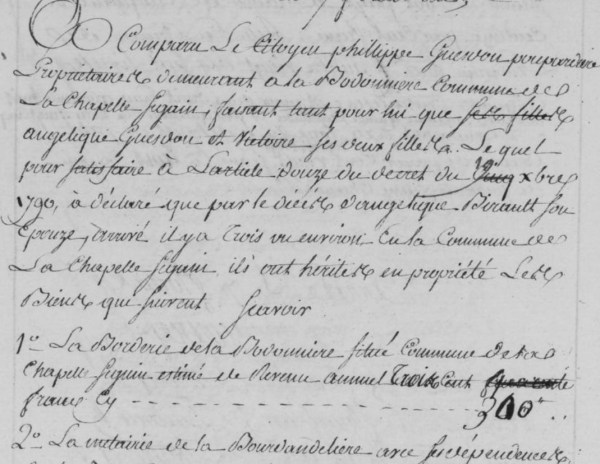 A Comparu Le Citoyen philippe Guesdon propriétaire
Proprietaire demeurant a la Bodonniere Commune de
La Chapelle Seguin, faisant tant pour lui que ses filles
angelique Guesdon et victoire ses deux filles. Lequel
pour satisfaire à L'article douze du decret du 19e xbre
1790, à déclaré que par le décès d'angelique Birault son
Epouze, arrivé il y a Trois ans environ En la Commune de
La Chapelle Seguin, ils ont hérités en propriété Les
Biens que suivent Scavoir
1o La Borderie de la Bodonniere situé Commune de la
Chapelle Seguin estimé de Revenu annuel Trois Cent quarente
francs Cy 300
2o La métairie de la Bourdandeliere avec ses dépendences